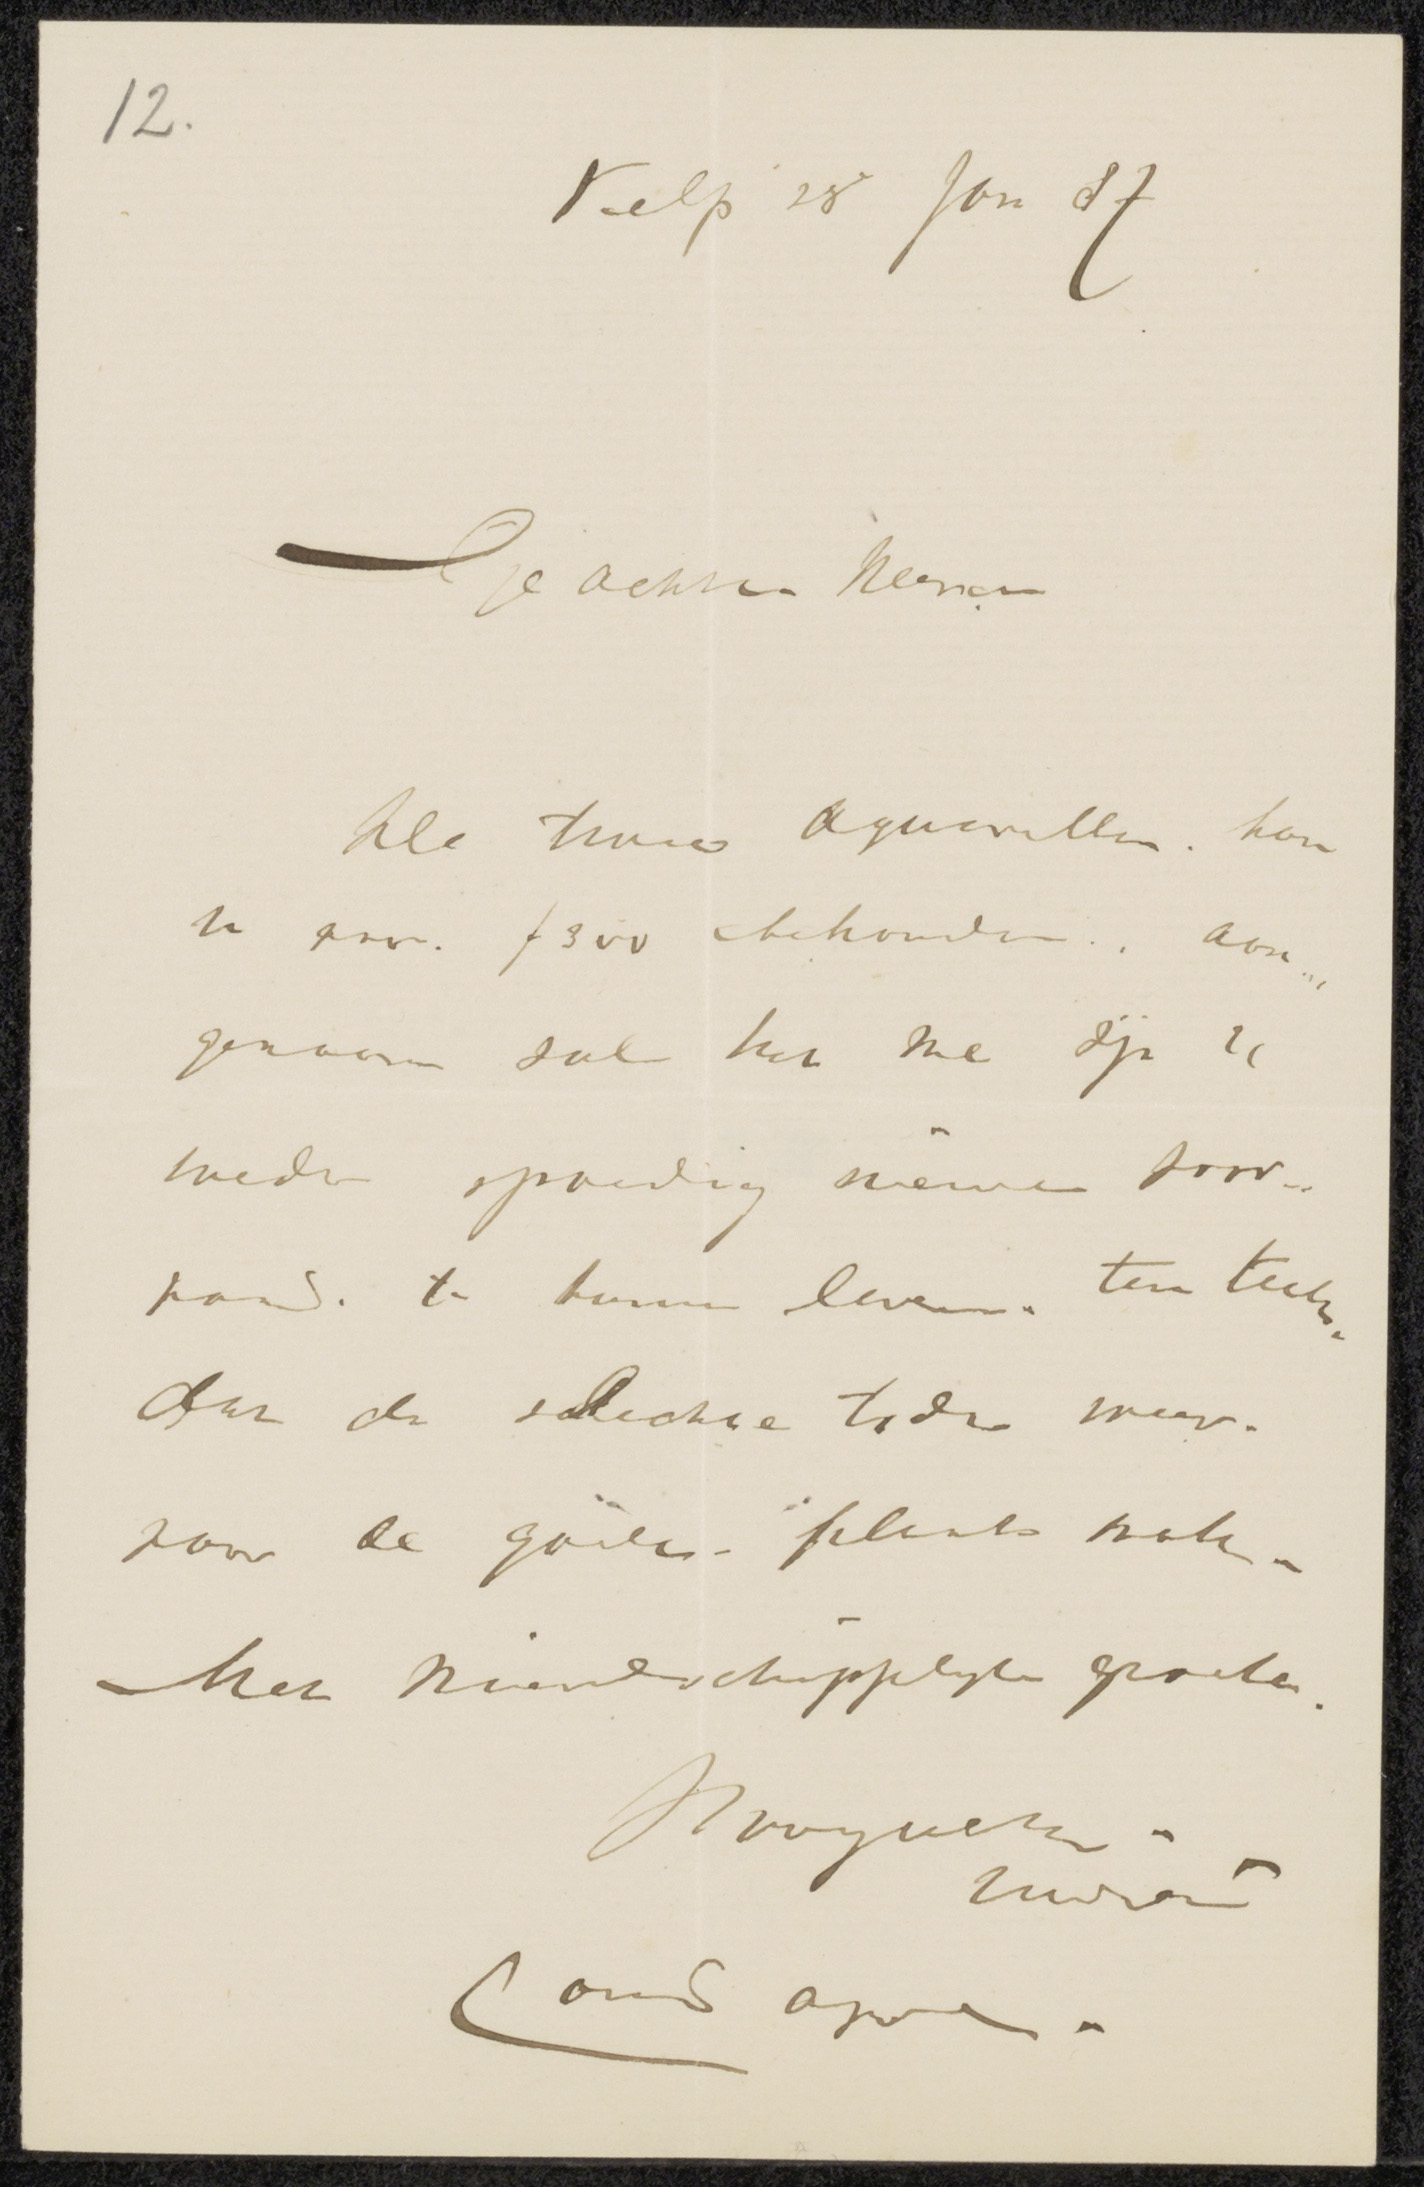 12.
Velp 28 Jan 87
Geachte Heeren
De twee aquarellen kan
u voor f 300 behouden. aan„
genaam zal het me zijn u
weder spoedig nieuwe voor„
raad te kunnen leveren. ten teeken
dat de slechte tijden weer
voor de goede plaats maken.
Met vriendschappelijke groeten.
Hoogachtend
Louis Apol.